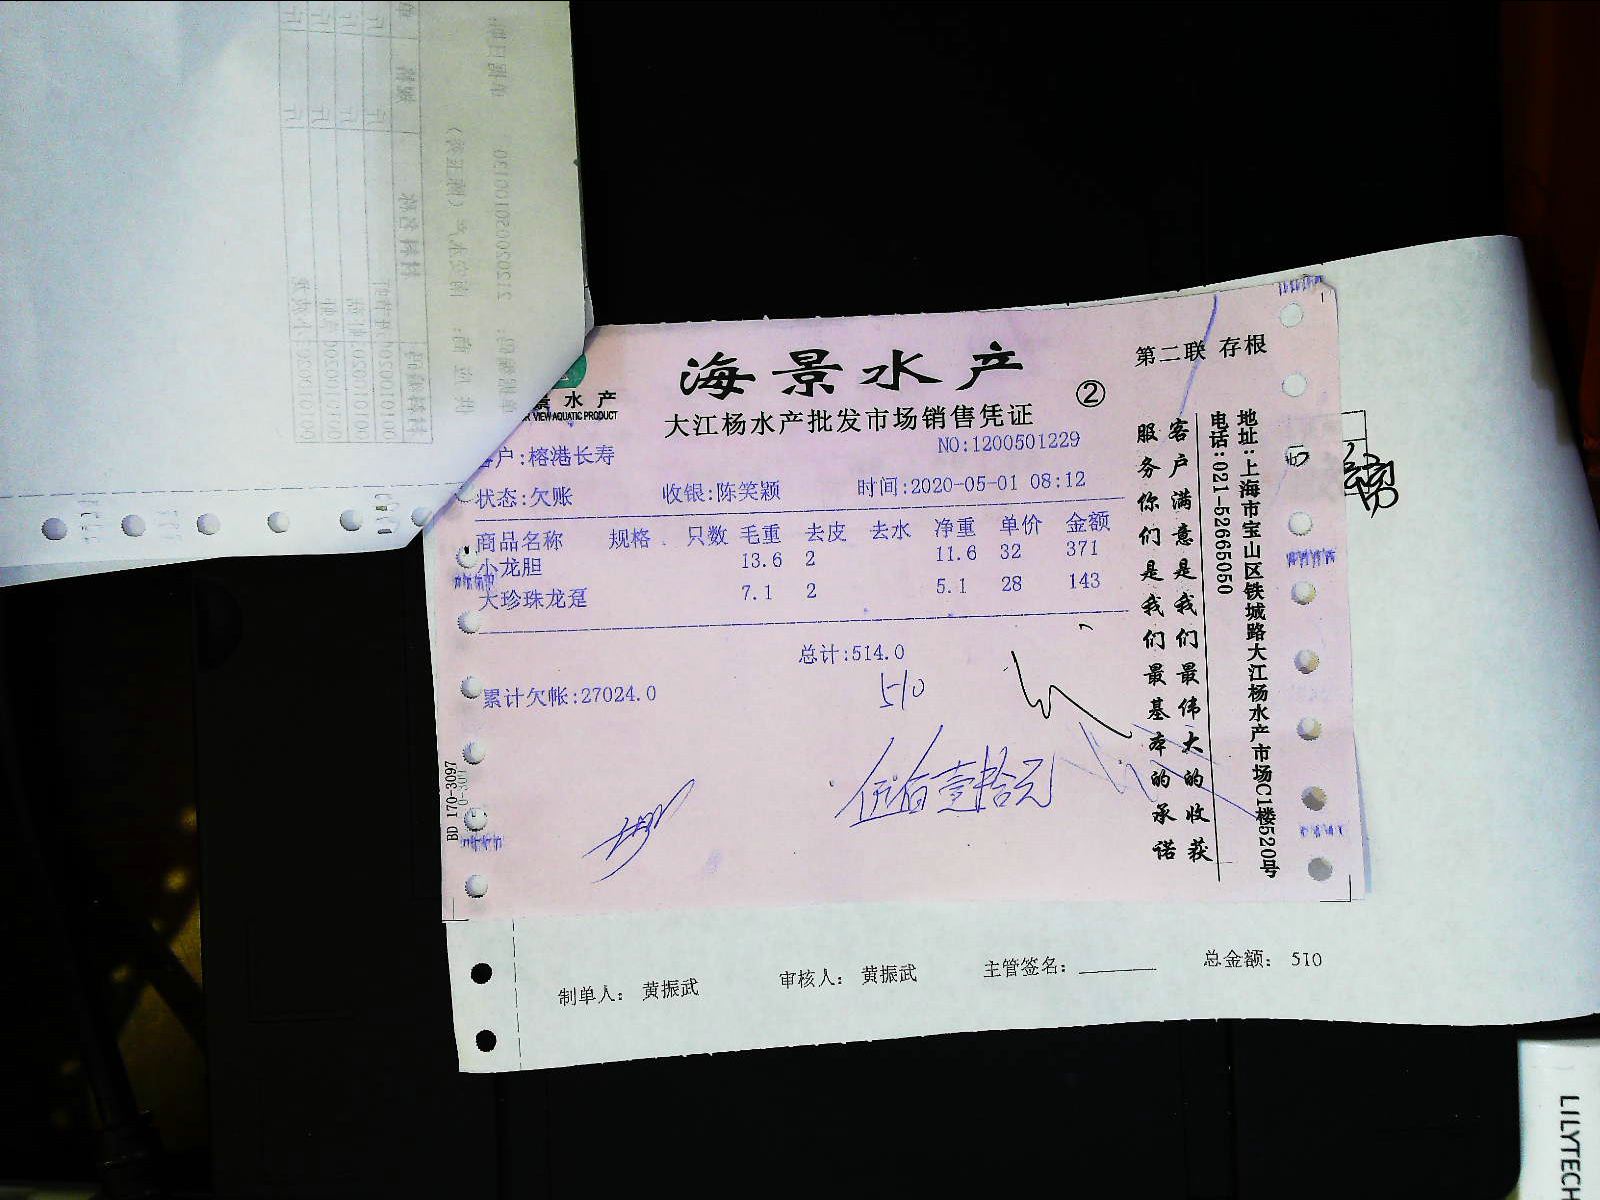 海景水产
第二联 存根
②
景水产
VIEW AQUATIC PRODUCT
大江杨水产批发市场销售凭证
户:榕港长寿
NO:1200501229
状态:欠账 收银:陈笑颖 时间:2020-05-01 08:12
商品名称 规格 只数 毛重 去皮 去水 净重 单价 金额
小龙胆 13.6 2 11.6 32 371
大珍珠龙趸 7.1 2 5.1 28 143
总计:514.0
510
累计欠帐:27024.0
伍佰壹拾元
客户满意是我们最伟大的收获
服务你们是我们最基本的承诺
地址:上海市宝山区铁城路大江杨水产市场C1楼520号
电话:021-52665050
BD 170-3097
制单人: 黄振武 审核人: 黄振武 主管签名: 总金额: 510
LILYTECH